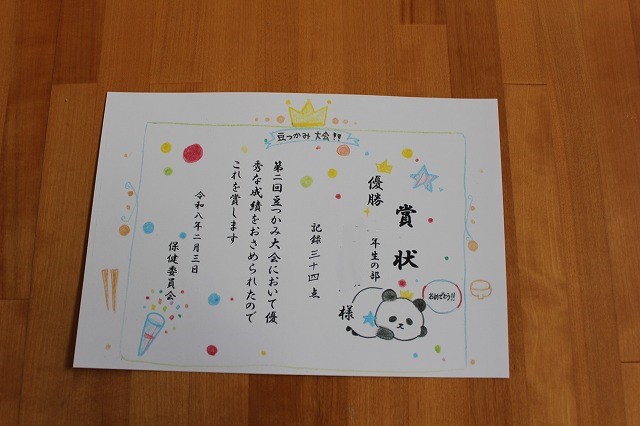 豆つかみ大会!!
賞状
優勝
年生の部
様
おめでとう!!
記録 三十四点
第二回豆つかみ大会において優
秀な成績をおさめられたので
これを賞します
令和八年二月三日
保健委員会